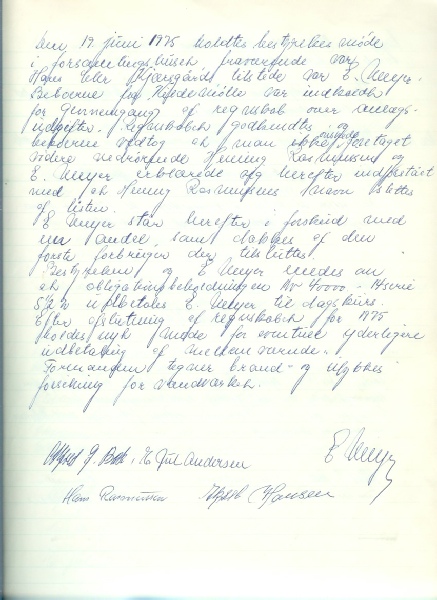 Den 19 juni 1975 holdtes bestyrelsesmöde
i forsamlingshuset fraværende var
Hans Eller tilstede var E. Meyer.
Beboerne fra Hededmölle var indkaldt
for gennemgang af regnskab over anlægs-
udgifter. Regnskabet godkendtes og
beboerne vedtog at man ikke foretaget
videre vedrörende Henning Rasmussen og
E. Meyer erklærede sig herefter indforstået
med at Henning Rasmussens navn slettes
af listen.
E Meyer står herefter i forskud med
en andel, som dækkes af den
förste forbruger der tilsluttes.
Bestyrelsen og E Meyer enedes om
at obligationsbeholdningen kr 4000 - H serie
5/2 % udbetales E. Meyer til dagskurs.
Efter afslutning af regnskabet for 1975
holdes nyt möde for eventuel yderligere
indbetaling af mellemværende.
Formanden tegner brand- og ulykkes
forsikring for vandværket.
E Juul Andersen E Meyer
Hans Rasmussen Hansen